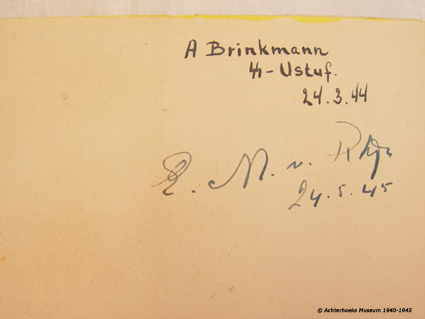 A Brinkmann
ᛋᛋ-Ustuf.
24.3.44
E. M. v.
24.5.45
© Achterhoeks Museum 1940-1945